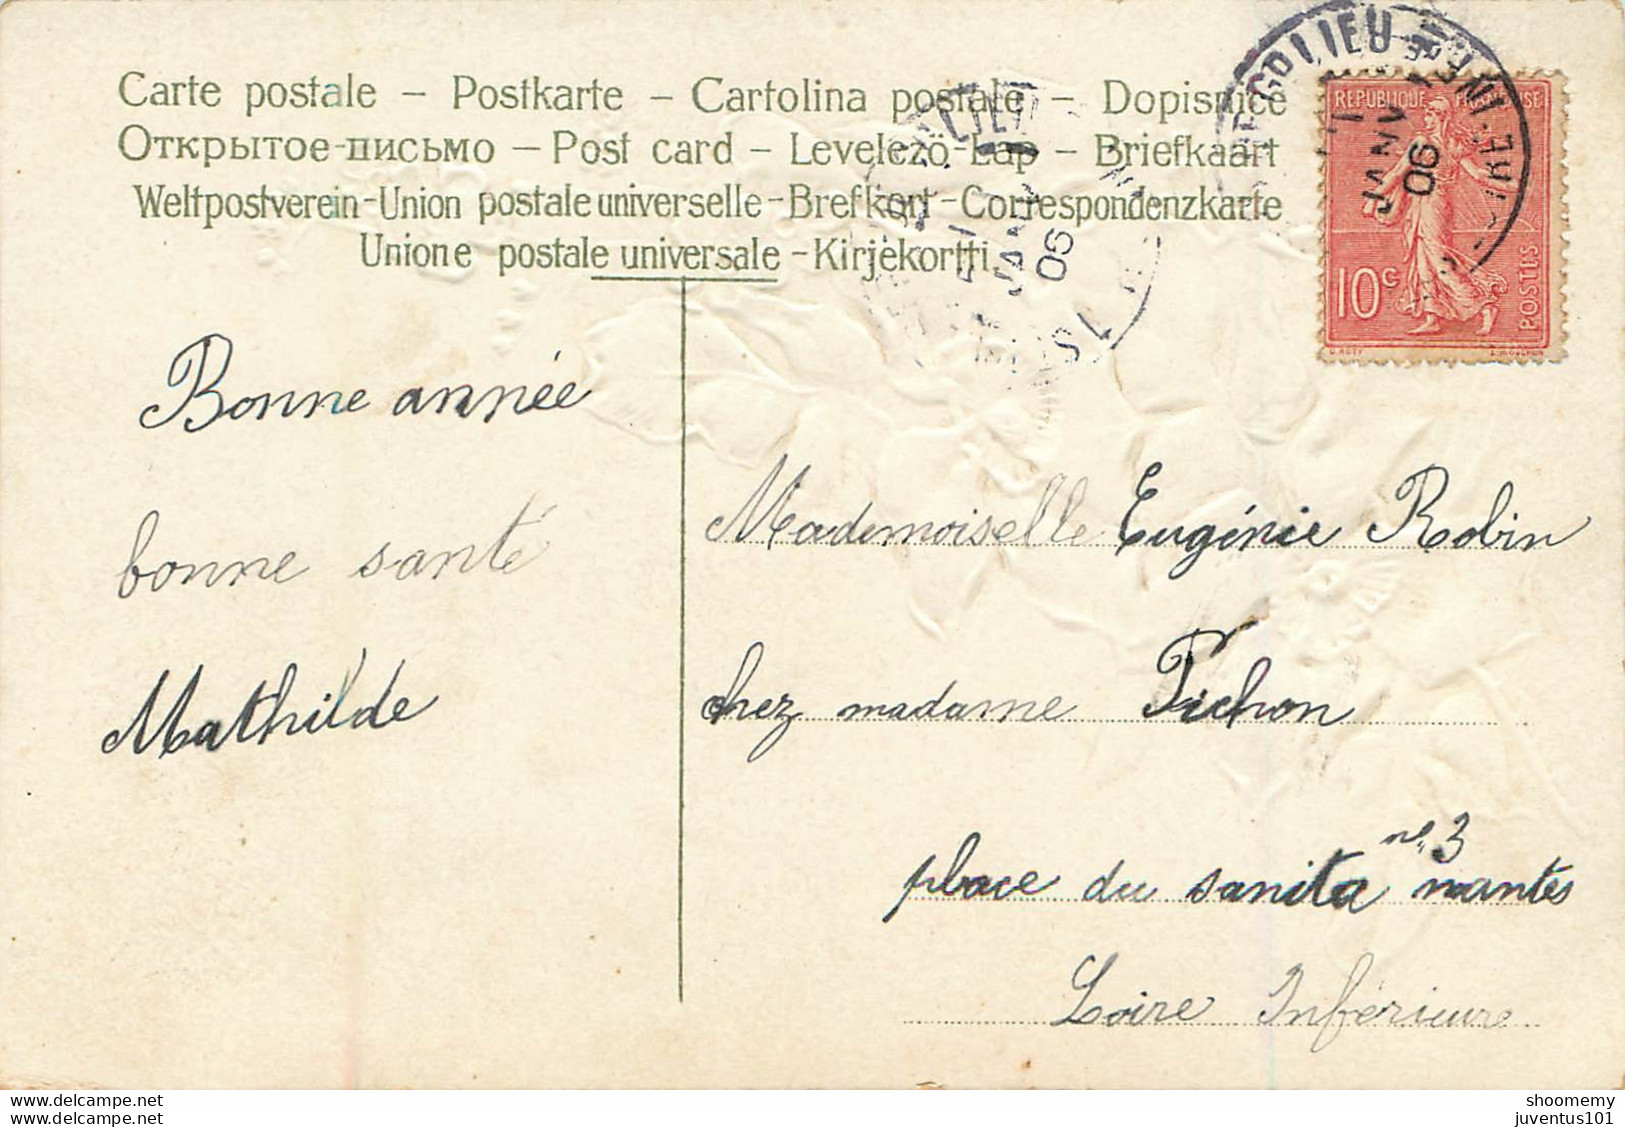 Carte postale – Postkarte – Cartolina postale – Dopisnice
Открытое-письмо – Post card – Levelező-Lap – Briefkaart
Weltpostverein-Union postale universelle-Brefkort-Correspondenzkarte
Unione postale universale-Kirjekortti.
REPUBLIQUE FRANÇAISE
10c
POSTES
JANV
06
06
Bonne année
bonne santé
Mathilde
Mademoiselle Eugénie Robin
chez madame Pichon
no 3
place du sanita nantes
Loire Inférieure
delcampe.net
delcampe.net
shoomemy
juventus101